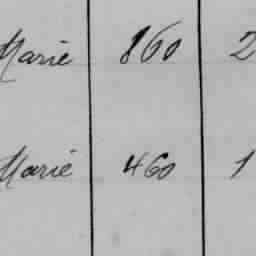 Marie 860 2
Marie 460 1